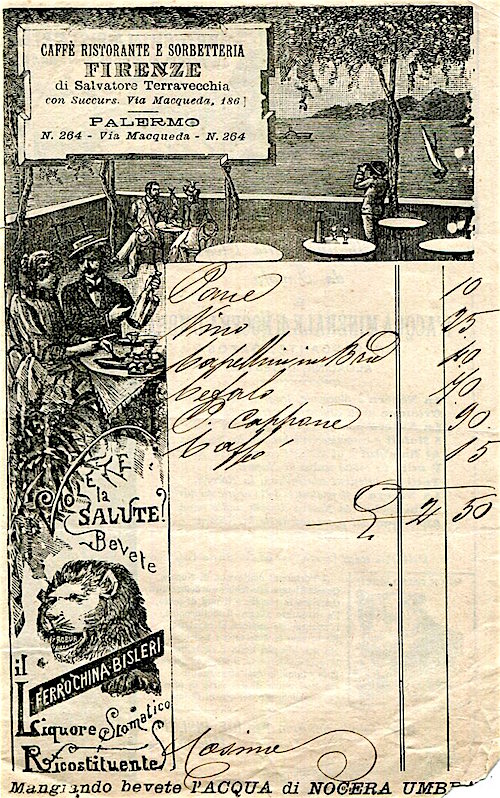 CAFFÈ RISTORANTE E SORBETTERIA
FIRENZE
di Salvatore Terravecchia
con Succurs. Via Macqueda, 186
PALERMO
N. 264 - Via Macqueda - N. 264
Pane 10
Vino 25
Capellini in Brod 40
Cefalo 70
C. Cappone 90
Caffé 15
£ 2 50
Volete
la
SALUTE?
Bevete
ROBUR
il
FERRO-CHINA-BISLERI
Liquore Stomatico
Ricostituente
Cosimo
Mangiando bevete l'ACQUA di NOCERA UMBRA